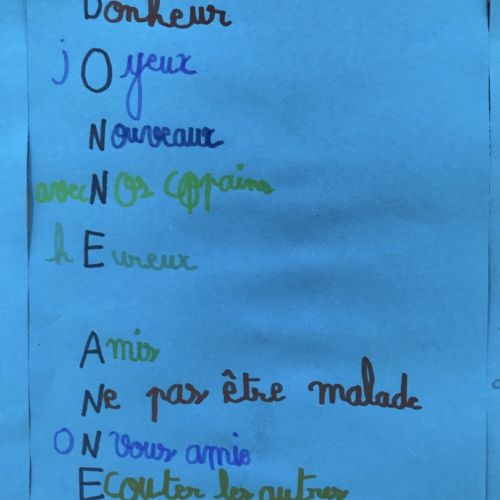 Bonheur
jOyeux
Nouveaux
avec Nos copains
hEureux
Amis
Ne pas être malade
ON vous amis
Ecouter les autres